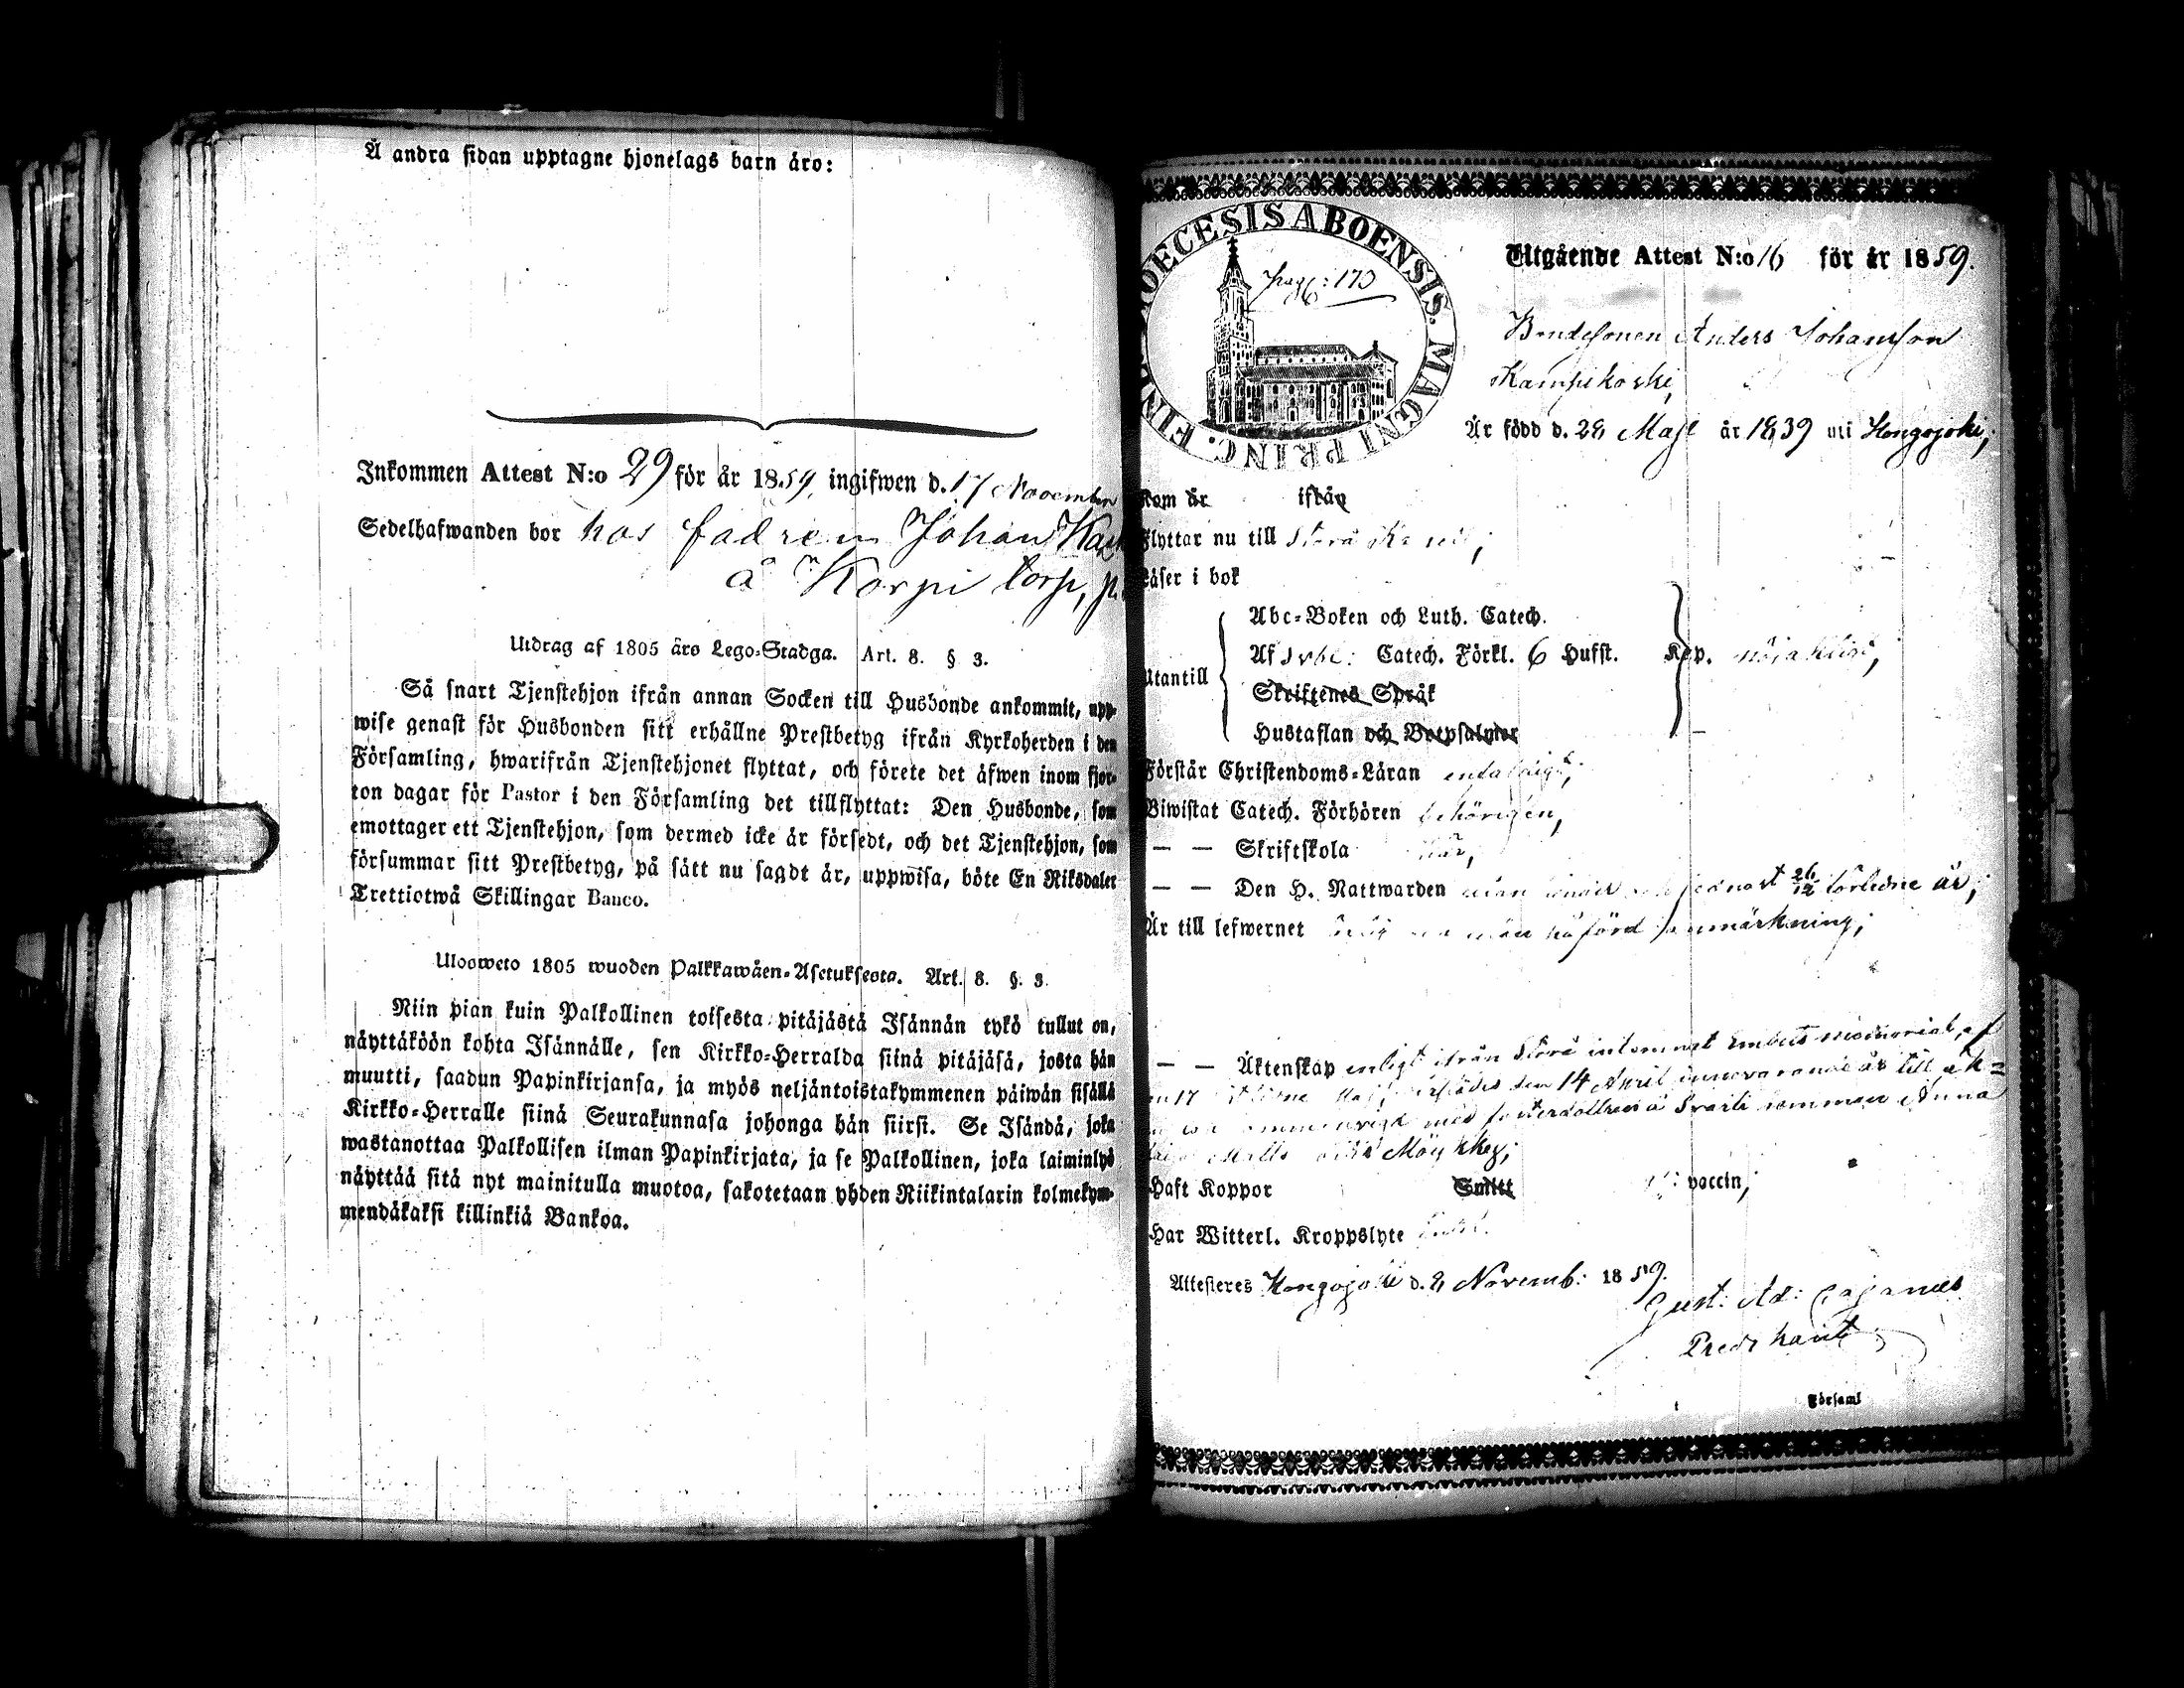 Å andra sidan upptagne hjonelags barn äro:
Inkommen Attest N:o 29 för år 1859, ingifwen d. 17 November
Sedelhafwanden bor hos fadren Johan
å Korpi torp,
Utdrag af 1805 års Lego-Stadga. Art. 8. § 3.
Så snart Tjenstehjon ifrån annan Socken till Husbonde ankommit, upp-
wise genast för Husbonden sitt erhållne Prestbetyg ifrån Kyrkoherden i den
Församling, hwarifrån Tjenstehjonet flyttat, och förete det äfwen inom fjor-
ton dagar för Pastor i den Församling det tillflyttat: Den Husbonde, som
emottager ett Tjenstehjon, som dermed icke är försedt, och det Tjenstehjon, som
försummar sitt Prestbetyg, på sätt nu sagdt är, uppwisa, böte En Riksdaler
Trettiotwå Skillingar Banco.
Ulosweto 1805 wuoden Palkkawäen-Asetuksesta. Art. 8. §. 3.
Niin pian kuin Palkollinen toisesta pitäjästä Isännän tykö tullut on,
näyttäköön kohta Isännälle, sen Kirkko-Herralda siinä pitäjäsä, josta hän
muutti, saadun Papinkirjansa, ja myös neljäntoistakymmenen päiwän sisällä
Kirkko-Herralle siinä Seurakunnasa johonga hän siirsi. Se Isändä, joka
wastanottaa Palkollisen ilman Papinkirjata, ja se Palkollinen, joka laiminlyö
näyttää sitä nyt mainitulla muotoa, sakotetaan yhden Riikintalarin kolmekym-
mendäkaksi killinkiä Bankoa.
DIOECESIS ABOENSIS. MAGNI PRINC. FINL.
pag: 173
Utgående Attest N:o 16 för år 1859.
Bondesonen Anders Johansson
Kampikoski,
Är född d. 28 Maji år 1839 uti Hongojoki,
Kom år ifrån
Flyttar nu till Storå
Läser i bok
Abc-Boken och Luth. Catech.
Af Svbl: Catech. Förkl. 6 Hufst. Kap. nöjaktligt,
Utantill
Skriftenes Språk
Hustaflan och Botpsalmer
Förstår Christendoms-Läran enfaldigt,
Biwistat Catech. Förhören behörigen,
— — Skriftskola här,
— — Den H. Nattwarden senast 26/12 förledne år,
Är till lefwernet utan påförd anmärkning,
— — Äktenskap enligt ifrån Storå inkommet Embets memorial, af
den 17 den 14 April innevarande år till äk=
med Anna
Haft Koppor Smitt vaccin,
Har Witterl. Kroppslyte
Attesteres Hongojoki d. 8 Novemb: 1859.
Gust: Ad: Cajanus
Predikant
Församl